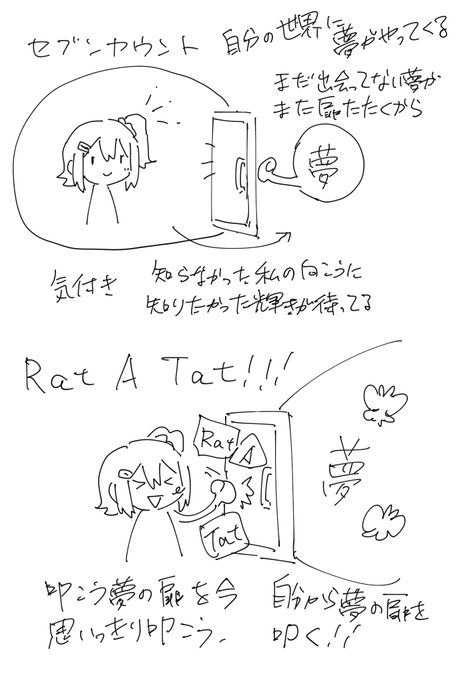 セブンカウント
自分の世界に
夢がやってくる
まだ出会ってない夢が
また扉たたくから
夢
気付き
知らなかった私の向こうに
知りたかった輝きが待ってる
Rat A Tat!!!
Rat
A
Tat
夢
叩こう夢の扉を今
思いっきり叩こう.
自分から夢の扉を
叩く!!